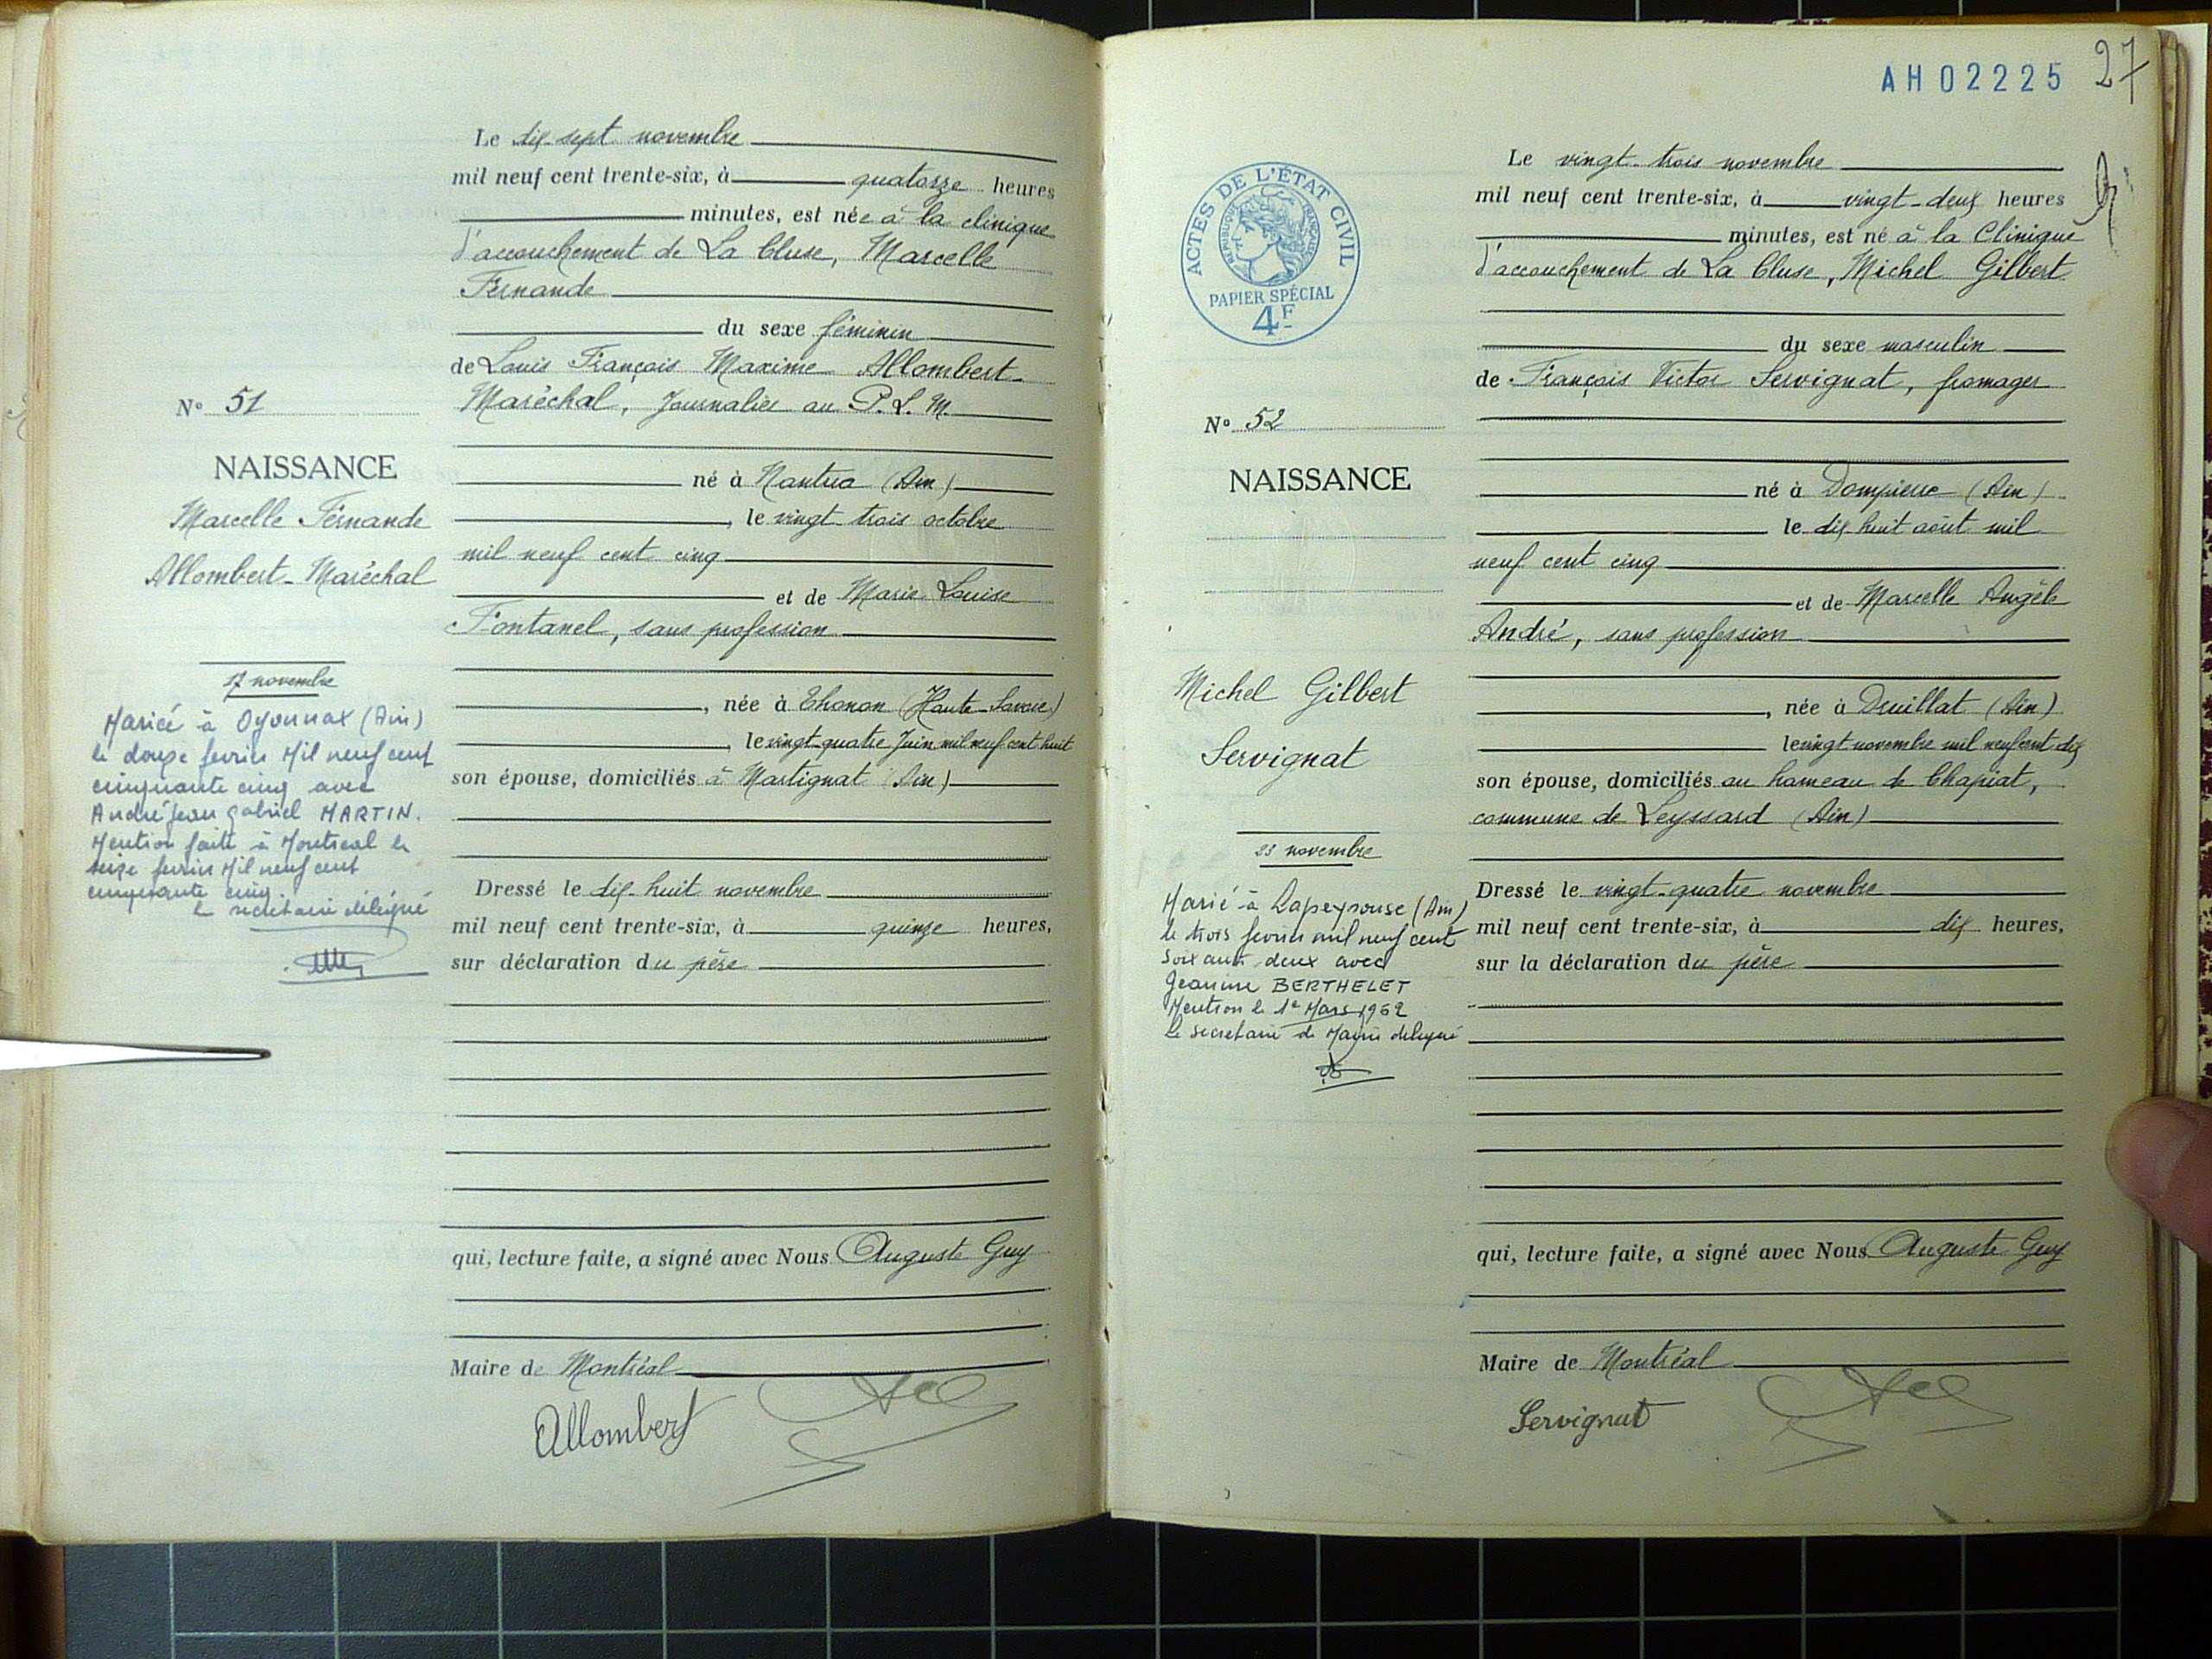 Le dix-sept novembre
mil neuf cent trente-six, à quatorze heures
minutes, est née à la clinique
d'accouchement de La Cluse, Marcelle
Fernande
du sexe féminin
de Louis François Maxime Allombert-
Maréchal, Journalier au P.L.M.
né à Nantua (Ain)
, le vingt-trois octobre
mil neuf cent cinq
et de Marie Louise
Fontanel, sans profession
, née à Thonon (Haute-Savoie)
, le vingt-quatre Juin mil neuf cent huit
son épouse, domiciliés à Martignat (Ain)
Dressé le dix-huit novembre
mil neuf cent trente-six, à quinze heures,
sur déclaration du père
qui, lecture faite, a signé avec Nous Auguste Guy
Maire de Montréal
Allombert
N° 51
NAISSANCE
Marcelle Fernande
Allombert-Maréchal
17 novembre
Mariée à Oyonnax (Ain)
le douze fevrier Mil neuf cent
cinquante cinq avec
André Jean Gabriel MARTIN.
Mention faite à Montreal le
seize fevrier Mil neuf cent
cinquante cinq.
le secrétaire délégué
AH02225
27
ACTES DE L'ÉTAT CIVIL
RÉPUBLIQUE FRANÇAISE
PAPIER SPÉCIAL
4F
Le vingt-trois novembre
mil neuf cent trente-six, à vingt-deux heures
minutes, est né à la Clinique
d'accouchement de La Cluse, Michel Gilbert
du sexe masculin
de François Victor Servignat, fromager
né à Dompierre (Ain)
le dix huit août mil
neuf cent cinq
et de Marcelle Angèle
André, sans profession
, née à Druillat (Ain)
le vingt novembre mil neuf cent dix
son épouse, domiciliés au hameau de Chapiat,
commune de Leyssard (Ain)
Dressé le vingt-quatre novembre
mil neuf cent trente-six, à dix heures,
sur la déclaration du père
qui, lecture faite, a signé avec Nous Auguste Guy
Maire de Montréal
Servignat
N° 52
NAISSANCE
Michel Gilbert
Servignat
23 novembre
Marié à Lapeyrouse (Ain)
le trois fevrier mil neuf cent
soixante deux avec
Jeanine BERTHELET
Mention le 1e Mars 1962
le secretaire de Mairie delegué